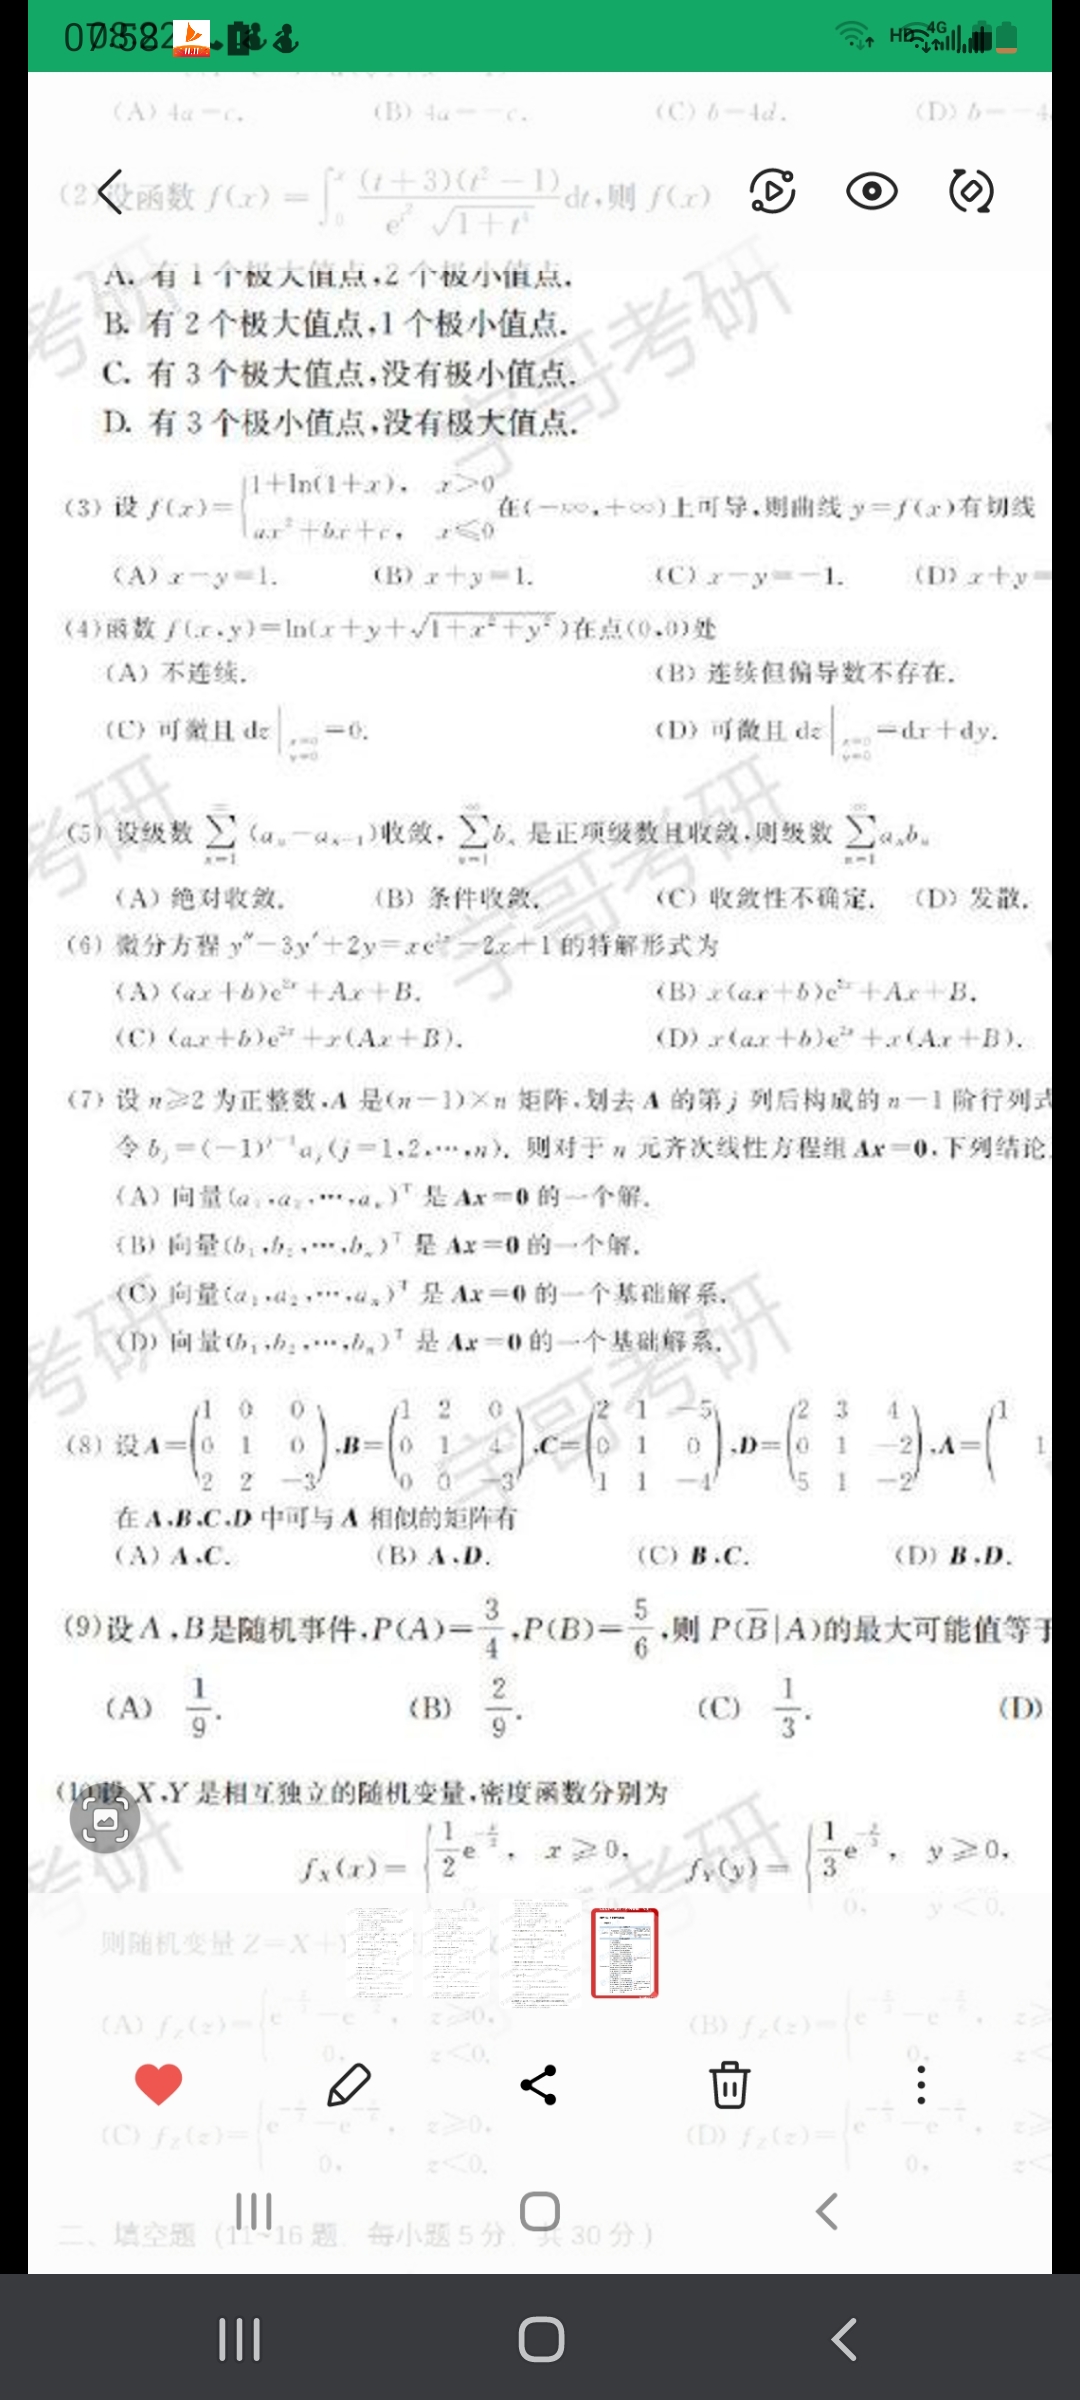 (A) 4a=c.  (B) 4a=-c.  (C) b=4d.  (D) b=-4
(2)设函数 f(x)=∫₀ˣ (t+3)(t²-1)/(e^{t²}√(1+t⁴)) dt,则 f(x)
A. 有 1 个极大值点,2 个极小值点.
B. 有 2 个极大值点,1 个极小值点.
C. 有 3 个极大值点,没有极小值点.
D. 有 3 个极小值点,没有极大值点.
(3) 设 f(x)={1+ln(1+x), x>0
ax²+bx+c, x≤0 在(-∞,+∞)上可导,则曲线 y=f(x)有切线
(A) x-y=1.  (B) x+y=1.  (C) x-y=-1.  (D) x+y=
(4)函数 f(x,y)=ln(x+y+√(1+x²+y²))在点(0,0)处
(A) 不连续.  (B) 连续但偏导数不存在.
(C) 可微且 dz|x=0 y=0 =0.  (D) 可微且 dz|x=0 y=0 =dx+dy.
(5) 设级数 ∑_{n=1}^∞ (aₙ-aₙ₋₁)收敛, ∑_{n=1}^∞ bₙ 是正项级数且收敛,则级数 ∑_{n=1}^∞ aₙbₙ
(A) 绝对收敛.  (B) 条件收敛.  (C) 收敛性不确定.  (D) 发散.
(6) 微分方程 y″-3y′+2y=xe²ˣ-2x+1 的特解形式为
(A) (ax+b)e²ˣ+Ax+B.  (B) x(ax+b)e²ˣ+Ax+B.
(C) (ax+b)e²ˣ+x(Ax+B).  (D) x(ax+b)e²ˣ+x(Ax+B).
(7) 设 n≥2 为正整数,A 是(n-1)×n 矩阵,划去 A 的第 j 列后构成的 n-1 阶行列式
令 bⱼ=(-1)ʲ⁻¹aⱼ(j=1,2,⋯,n). 则对于 n 元齐次线性方程组 Ax=0,下列结论
(A) 向量(a₁,a₂,⋯,aₙ)ᵀ 是 Ax=0 的一个解.
(B) 向量(b₁,b₂,⋯,bₙ)ᵀ 是 Ax=0 的一个解.
(C) 向量(a₁,a₂,⋯,aₙ)ᵀ 是 Ax=0 的一个基础解系.
(D) 向量(b₁,b₂,⋯,bₙ)ᵀ 是 Ax=0 的一个基础解系.
(8) 设 A=(1 0 0; 0 1 0; 2 2 -3),B=(1 2 0; 0 1 4; 0 0 -3),C=(2 1 -5; 0 1 0; 1 1 -4),D=(2 3 4; 0 1 -2; 5 1 -2),Λ=(1 1
在 A,B,C,D 中可与 Λ 相似的矩阵有
(A) A,C.  (B) A,D.  (C) B,C.  (D) B,D.
(9)设 A,B是随机事件,P(A)=3/4,P(B)=5/6,则 P(B̅|A)的最大可能值等于
(A) 1/9.  (B) 2/9.  (C) 1/3.  (D)
(10)设 X,Y 是相互独立的随机变量,密度函数分别为
f_X(x)={1/2 e^{-x/2}, x≥0,  f_Y(y)={1/3 e^{-y/3}, y≥0,
0, y<0.
则随机变量 Z=X+Y
(A) f_Z(z)=  z≥0,  (B) f_Z(z)=
0, z<0.  0,
(C) f_Z(z)=  z≥0,  (D) f_Z(z)=
0, z<0.  0,
二、填空题 (11~16 题, 每小题 5 分, 共 30 分)
学哥考研